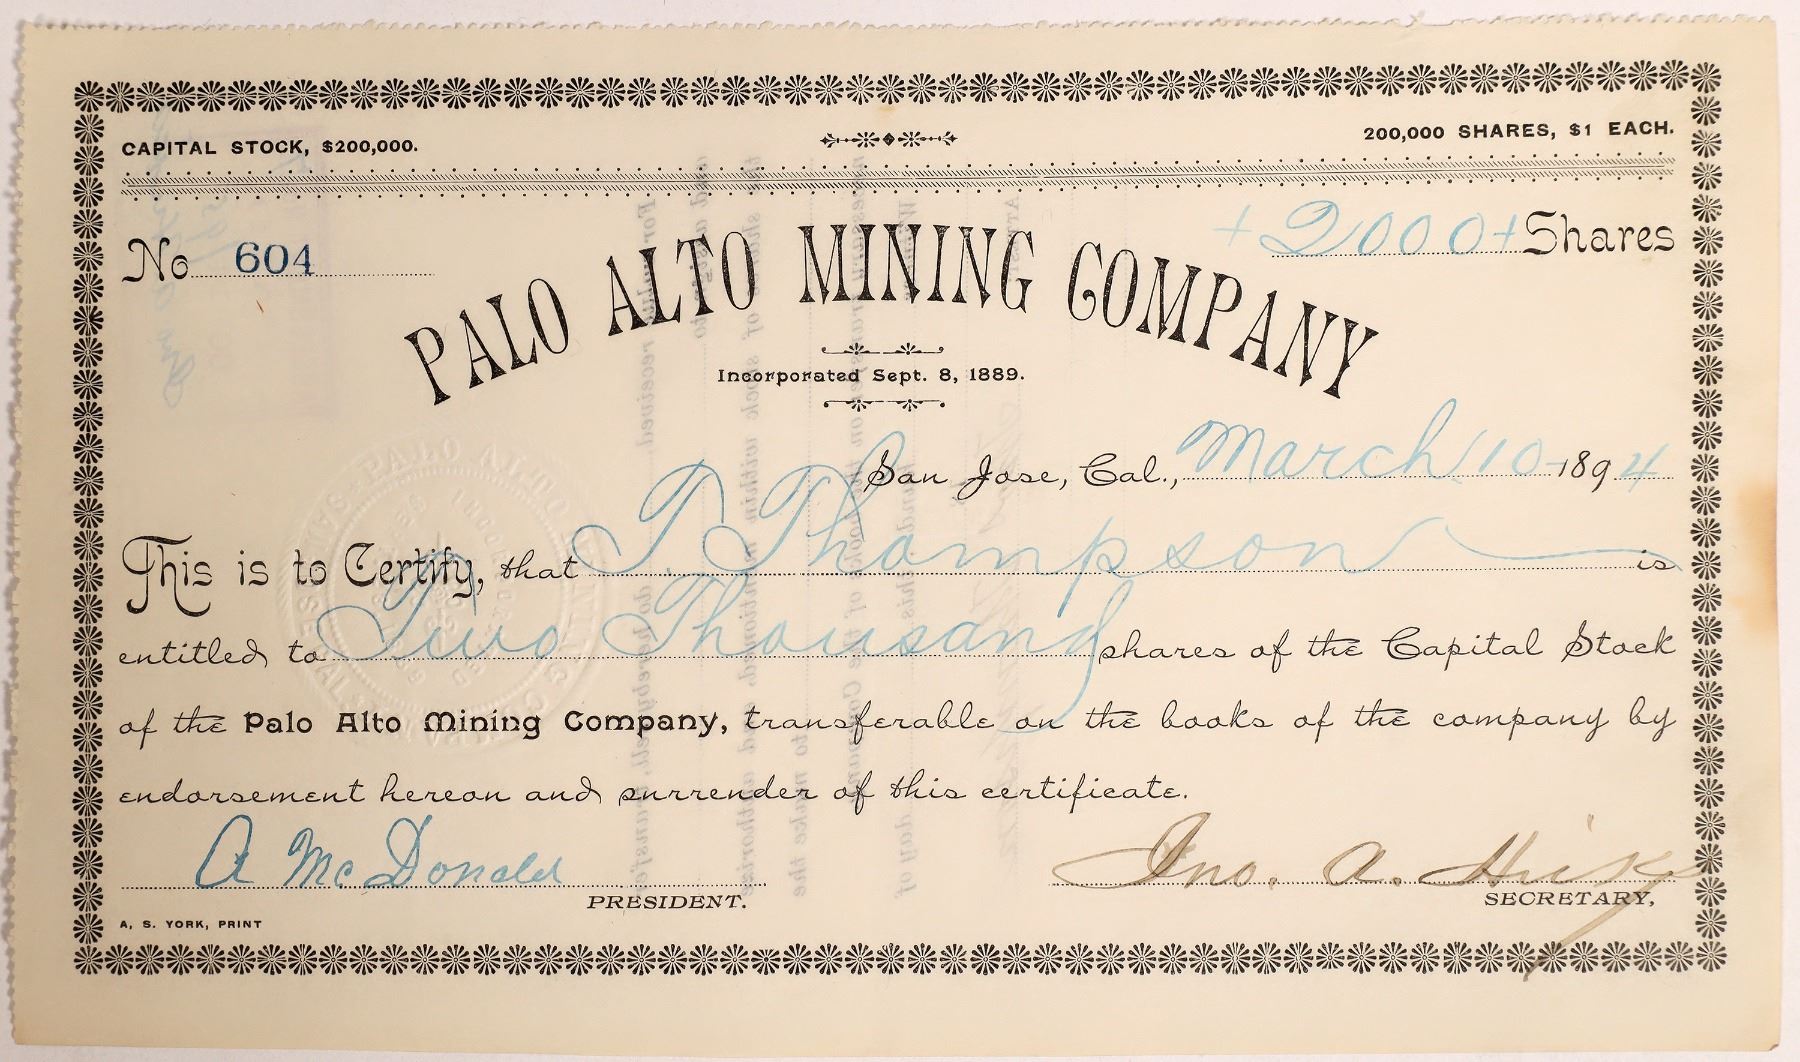 CAPITAL STOCK, $200,000.
200,000 SHARES, $1 EACH.
No 604
+2000+ Shares
PALO ALTO MINING COMPANY
Incorporated Sept. 8, 1889.
San Jose, Cal., March 10 1894
This is to Certify, that T. Thompson is
entitled to Two Thousand shares of the Capital Stock
of the Palo Alto Mining Company, transferable on the books of the company by
endorsement hereon and surrender of this certificate.
A McDonald
PRESIDENT.
Jno. A. Hicks
SECRETARY,
A, S. YORK, PRINT